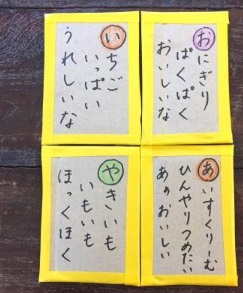 おにぎり
ぱくぱく
おいしいな
いちご
いっぱい
うれしいな
あいすくりーむ
ひんやりつめたい
あぁおいしい
やきいも
いもいも
ほっくほく